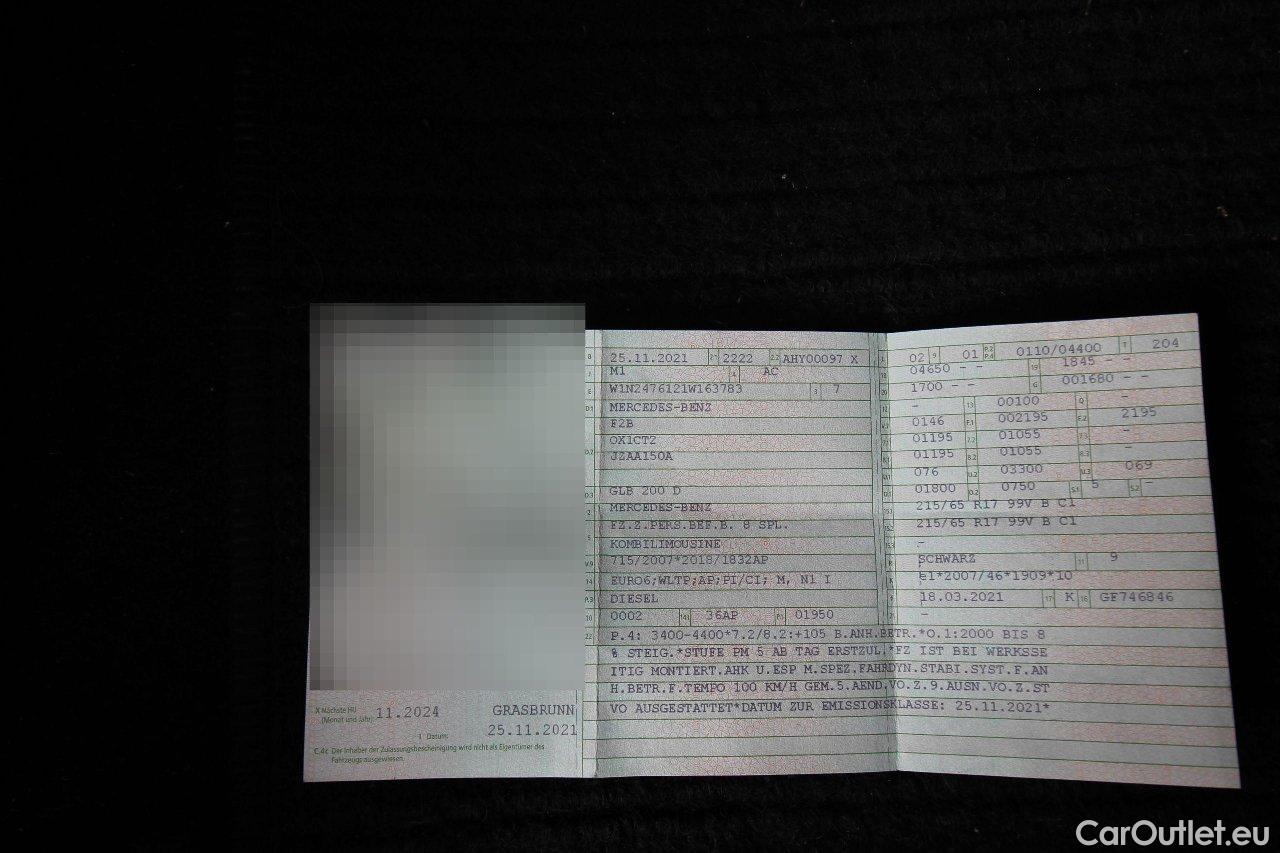 X Nächste HU
(Monat und Jahr)
11.2024
GRASBRUNN
I Datum:
25.11.2021
C.4c Der Inhaber der Zulassungsbescheinigung wird nicht als Eigentümer des
Fahrzeugs ausgewiesen.
B 25.11.2021 2.1 2222 2.2 AHY00097 X
J M1 4 AC
E W1N2476121W163783 3 7
D.1 MERCEDES-BENZ
F2B
D.2 OX1CTZ
JZAA150A
D.3 GLB 200 D
2 MERCEDES-BENZ
5 FZ.Z.PERS.BEF.B. 8 SPL.
KOMBILIMOUSINE
V.9 715/2007*2018/1832AP
14 EURO6;WLTP;AP;PI/CI; M, N1 I
P.3 DIESEL
10 0002 14.1 36AP P.1 01950
22 P.4: 3400-4400*7.2/8.2:+105 B.ANH.BETR.*O.1:2000 BIS 8
% STEIG.*STUFE PM 5 AB TAG ERSTZUL.*FZ IST BEI WERKSSE
ITIG MONTIERT.AHK U.ESP M.SPEZ.FAHRDYN.STABI.SYST.F.AN
H.BETR.F.TEMPO 100 KM/H GEM.5.AEND.VO.Z.9.AUSN.VO.Z.ST
VO AUSGESTATTET*DATUM ZUR EMISSIONSKLASSE: 25.11.2021*
L 02 9 01 P.2 P.4 0110/04400 T 204
18 04650 - - 19 1845 - -
20 1700 - - G 001680 - -
12 - 13 00100 Q -
V.7 0146 F.1 002195 F.2 2195
7.1 01195 7.2 01055 7.3 -
8.1 01195 8.2 01055 8.3 -
U.1 076 U.2 03300 U.3 069
O.1 01800 O.2 0750 S.1 5 S.2 -
15.1 215/65 R17 99V B C1
15.2 215/65 R17 99V B C1
15.3 -
R SCHWARZ 11 9
K e1*2007/46*1909*10
6 18.03.2021 17 K 16 GF746846
21 -
CarOutlet.eu